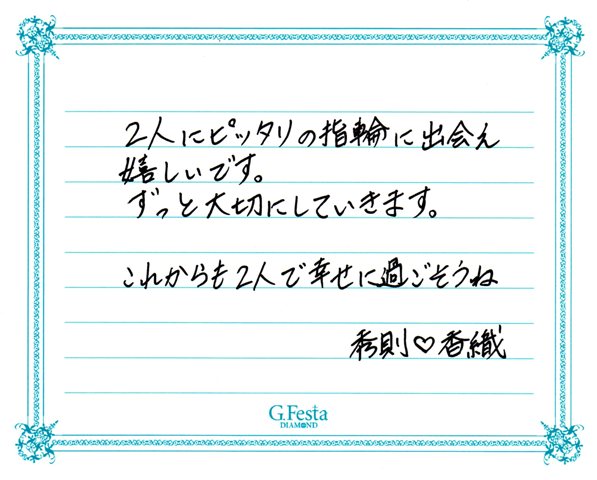 2人にピッタリの指輪に出会え
嬉しいです。
ずっと大切にしていきます。
これからも2人で幸せに過ごそうね
秀則♡香織
G.Festa
DIAMOND